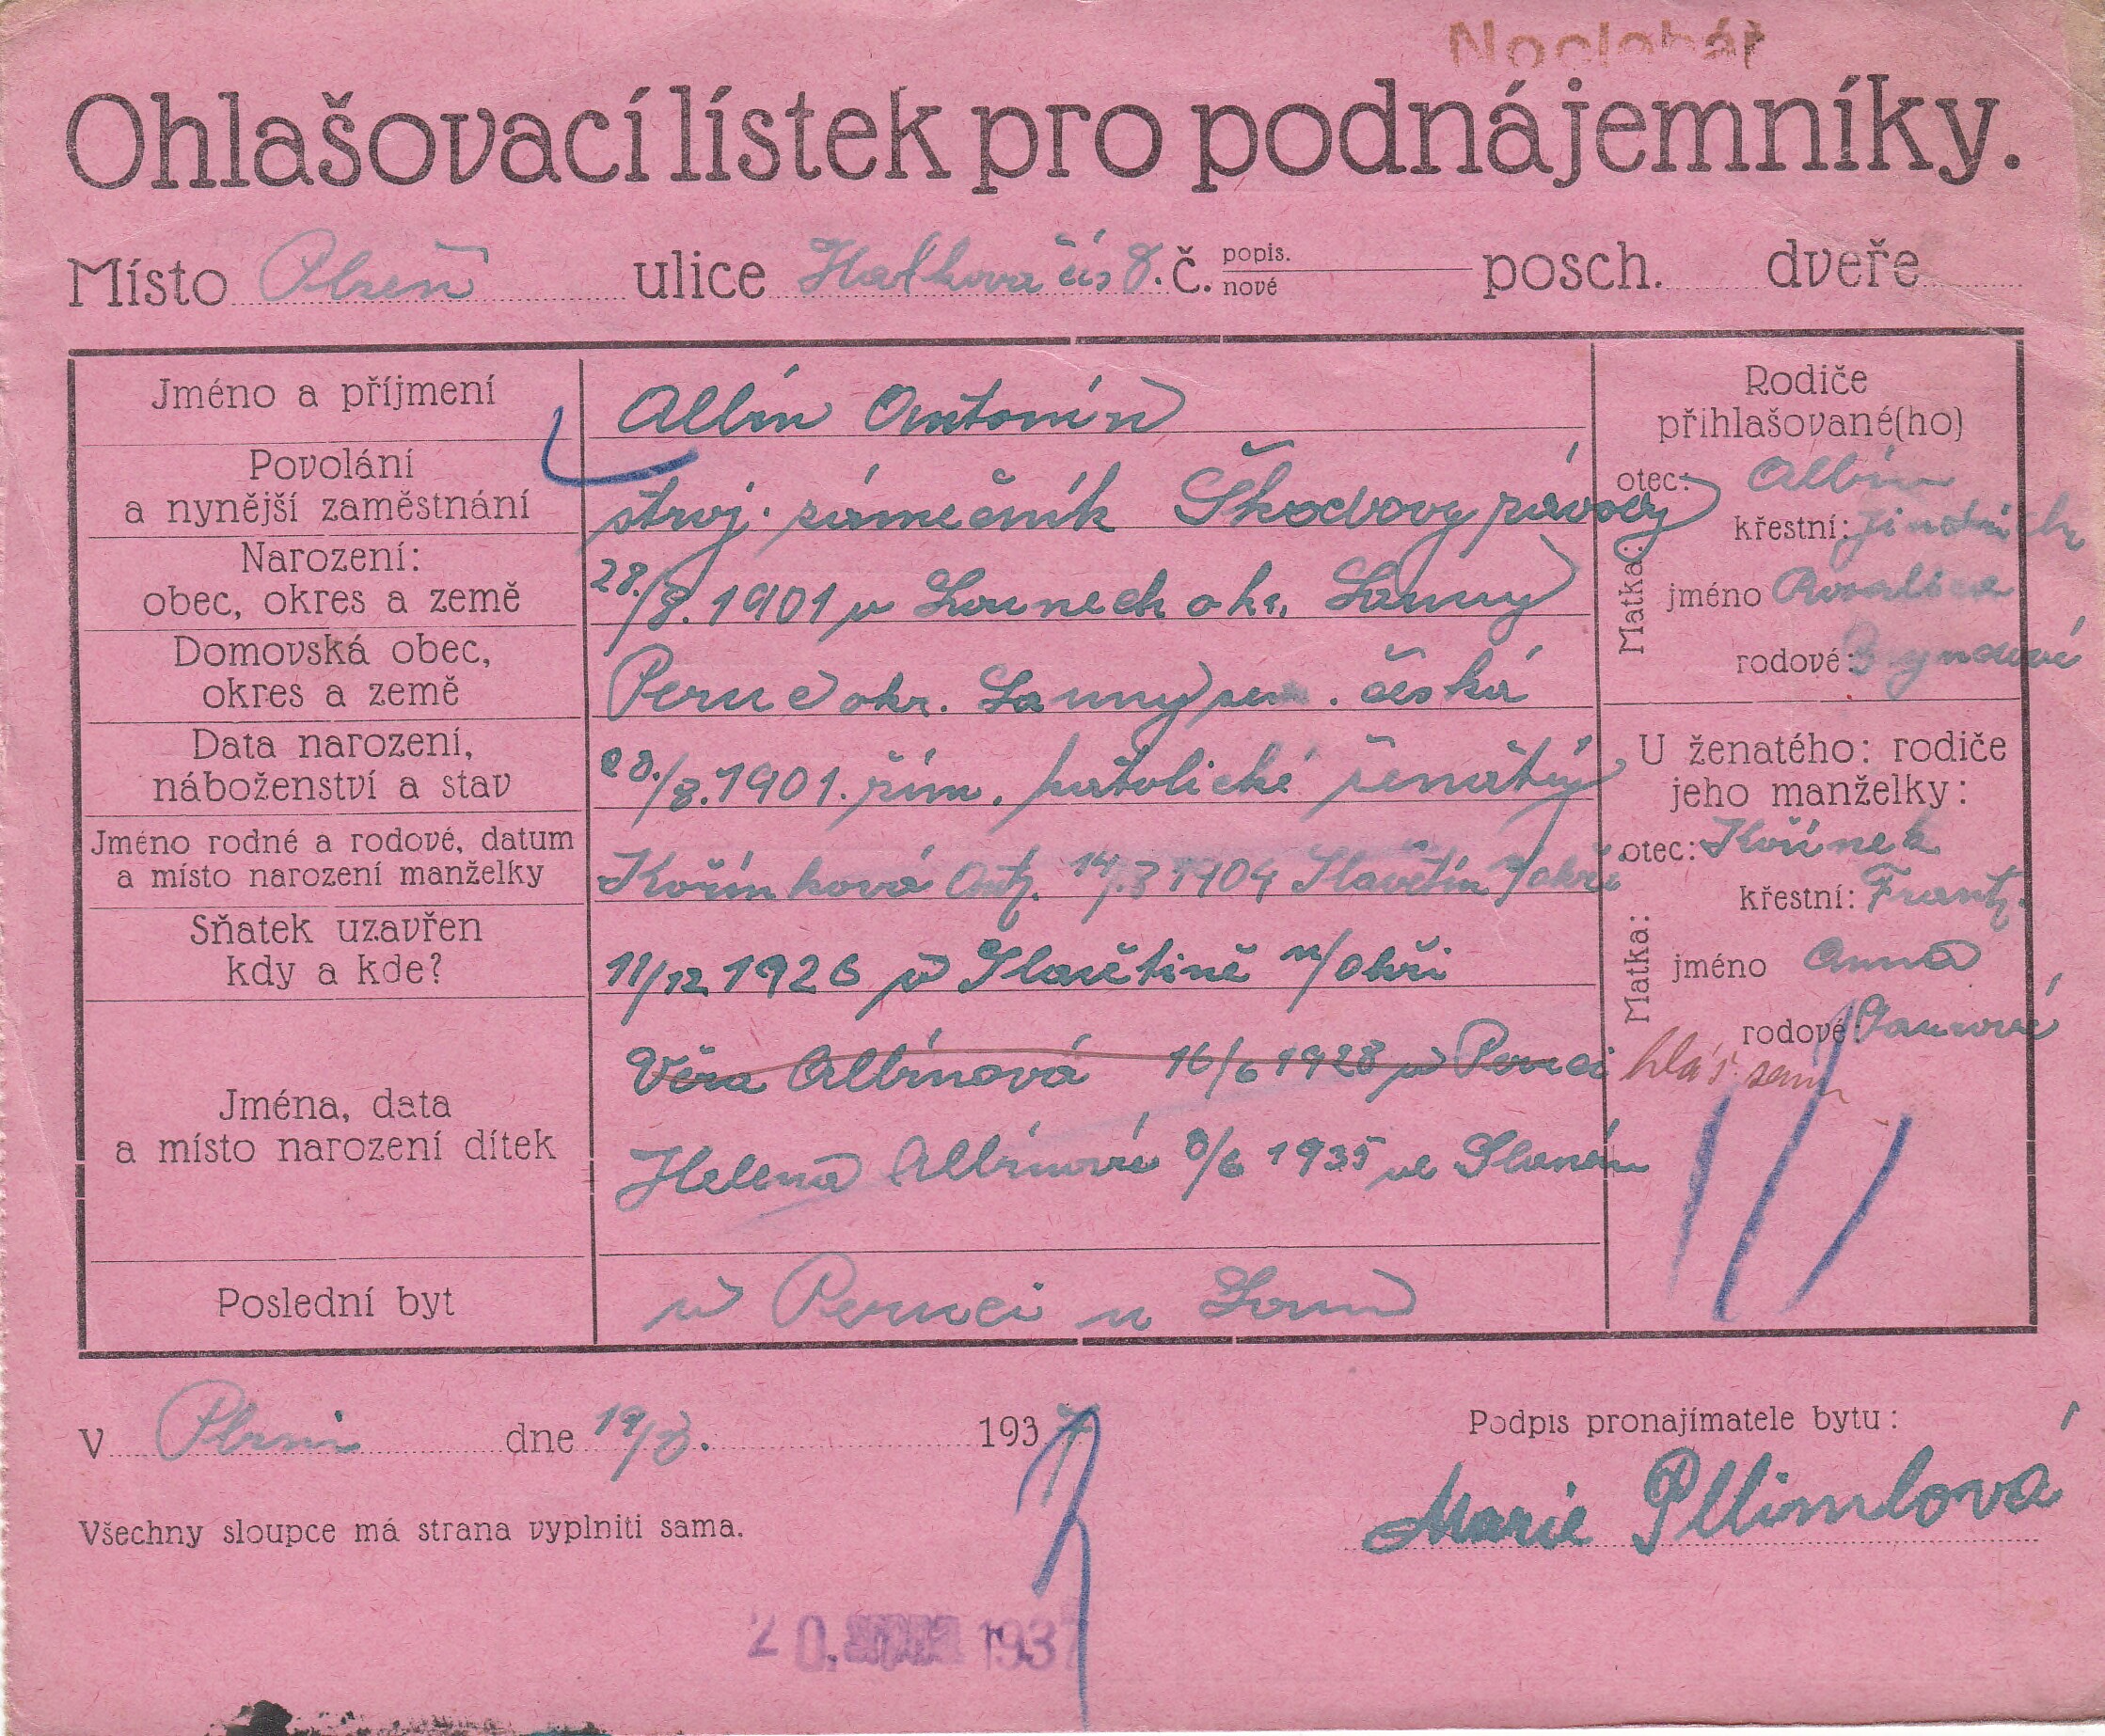 Noclehář
Ohlašovací lístek pro podnájemníky.
Místo Plzeň ulice Hálkova čís 8. č. popis. nové posch. dveře
Jméno a příjmení Albín Antonín
Povolání a nynější zaměstnání stroj. zámečník Škodovy závody
Narození: obec, okres a země 28./8. 1901 v Lounech okr. Louny
Domovská obec, okres a země Peruc okr. Louny zem. česká
Data narození, náboženství a stav 28./8. 1901. řím. katolické ženatý
Jméno rodné a rodové, datum a místo narození manželky Kořínková Ant. 14/.3 1904 Slavětín n/ohří
Sňatek uzavřen kdy a kde? 11/12 1926 v Slavětíně n/ohří
Jména, data a místo narození dítek Věra Albínová 16/6 1928 v Peruci
Helena Albínová 8/6 1935 ve Slaném
Poslední byt v Peruci u Loun
Rodiče
přihlašované(ho)
otec: Albín
křestní: Jindřich
Matka: jméno Rosalie
rodové:
U ženatého: rodiče
jeho manželky:
otec: Kořínek
křestní: Frant.
Matka: jméno Anna
rodové:
hlás. sam
V Plzni dne 19/8. 1937
Podpis pronajímatele bytu:
Marie
Všechny sloupce má strana vyplniti sama.
20. 1937